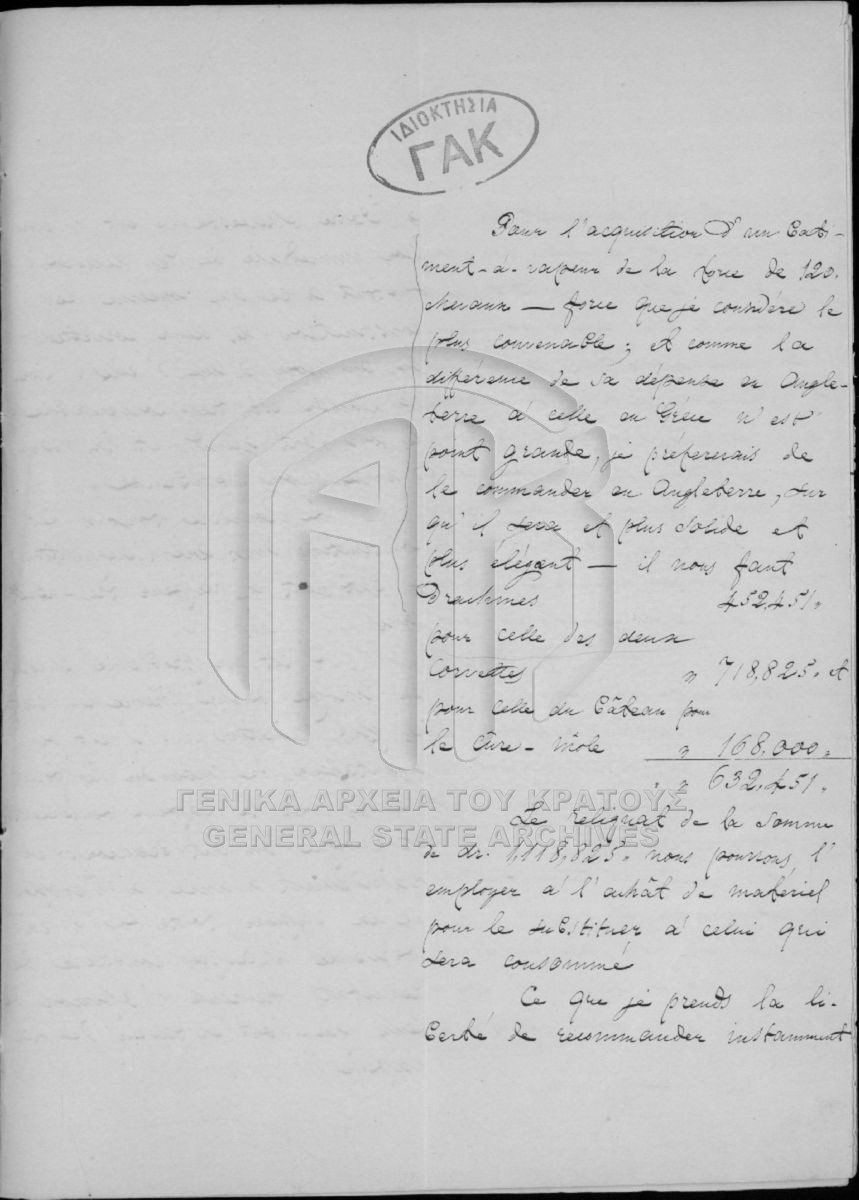 ΙΔΙΟΚΤΗΣΙΑ
ΓΑΚ
Pour l'acquisition d'un bati-
ment-à-vapeur de la force de 120.
chevaux — force que je considère le
plus convenable; et comme la
différence de sa dépense en Angle-
terre à celle en Grèce n'est
point grande, je préfererais de
le commander en Angleterre, sur
qu'il sera et plus solide et
plus élégant — il nous faut
Drachmes 452,451"
pour celle des deux
Corvettes " 718,825" et
pour celle du bâteau pour
le Cure-môle " 168,000"
" 632,451"
ΓΕΝΙΚΑ ΑΡΧΕΙΑ ΤΟΥ ΚΡΑΤΟΥΣ
GENERAL STATE ARCHIVES
Le reliquat de la somme
de dr. 1,118,823" nous pouvons l'
employer à l'achât de matériel
pour le substituer à celui qui
sera consommé
Ce que je prends la li-
berté de recommander instamment